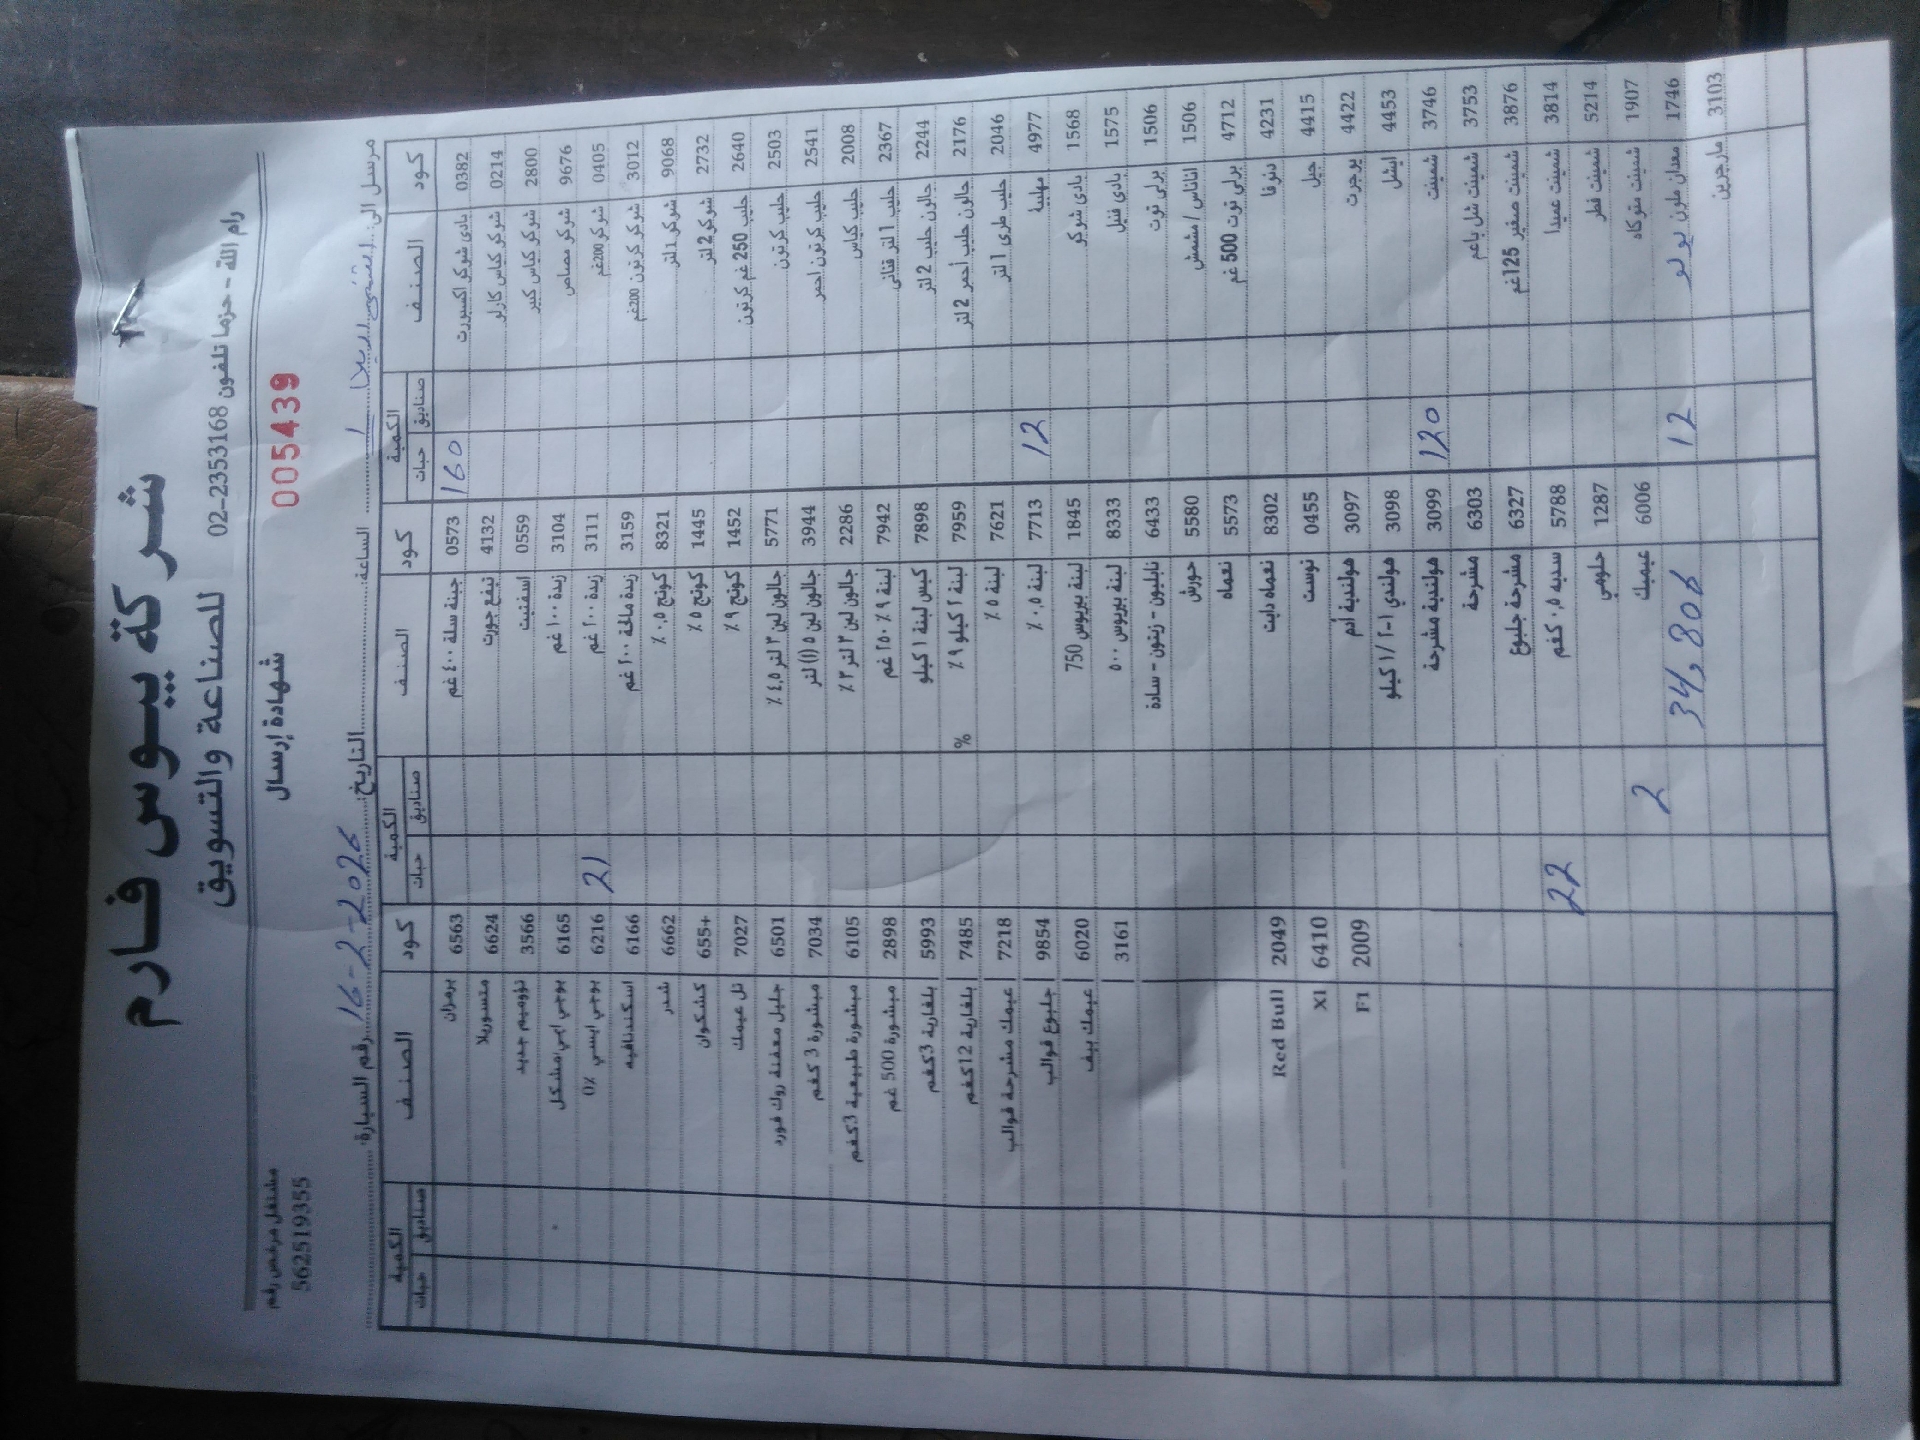 شركة بيوس فارم
للصناعة والتسويق
رام الله - حزما تلفون 02-2353168
مشتغل مرخص رقم
562519355
شهادة إرسال
005439
مرسل الى:
الساعة:
التاريخ: 16-2-2026
رقم السيارة:
كود الصنف الكمية صناديق حبات
0382 بادي شوكو اكسبورت 160
0214 شوكو كياس كارلو
2800 شوكو كياس كبير
9676 شوكو مصاص
0405 شوكو 200غم
3012 شوكو كرتون 200غم
9068 شوكو 1 لتر
2732 شوكو 2 لتر
2640 حليب 250 غم كرتون
2503 حليب كرتون
2541 حليب كرتون احمر
2008 حليب كياس
2367 حليب 1 لتر قناني
2244 جالون حليب 2 لتر
2176 جالون حليب احمر 2 لتر
2046 حليب طري 1 لتر
4977 مهلبية 12
1568 بادي شوكو
1575 بادي فنيل
1506 برلي توت
1506 اناناس / مشمش
4712 برلي توت 500 غم
4231 دنوفا
4415 جيل
4422 يوجرت
4453 ايشل
3746 شمينت 120
3753 شمينت شل باعم
3876 شمينت صغير 125غم
3814 شمينت عميدا
5214 شمينت فطر
1907 شمينت متوكاه
1746 معدان ملون يولو 12
3103 مارجرين
كود الصنف الكمية صناديق حبات
0573 جبنة سلة ٤٠٠ غم
4132 تيفع جورت
0559 اسفنيت
3104 زبدة ١٠٠ غم
3111 زبدة ٢٠٠ غم 21
3159 زبدة مالحة ٢٠٠ غم
8321 كوتج ٠,٥ ٪
1445 كوتج ٥٪
1452 كوتج ٩٪
5771 جالون لبن ٣ لتر ٤,٥ ٪
3944 جالون لبن ٥ (١) لتر
2286 جالون لبن ٣ لتر ٣٪
7942 لبنة ٩٪ ٢٥٠ غم
7898 كيس لبنة ١ كيلو
7959 لبنة ٢ كيلو ٩٪ %
7621 لبنة ٥٪
7713 لبنة ٠,٥ ٪
1845 لبنة بيريوس 750
8333 لبنة بيريوس ٥٠٠
6433 نابليون - زيتون - سادة
5580 حورش
5573 نعماه
8302 نعماه دايت
0455 توست
3097 هولندية أدم
3098 هولندي ١-٢ / ١ كيلو
3099 هولندية مشرحة
6303 مشرحة
6327 مشرحة جلبوع
5788 سديه ٥, كغم 22
1287 حلومي
6006 عيميك 2
34,806
كود الصنف الكمية صناديق حبات
6563 برمزان
6624 متسوريلا
3566 نؤوميم جديد
6165 يوجي ايبي/مشكل
6216 يوجي ايبسي 0٪
6166 اسكندنافيه
6662 شدر
655+ كشكوان
7027 تل عيمك
6501 جليل معفنة روك فورد
7034 مبشورة 3 كغم
6105 مبشورة طبيعية 3كغم
2898 مبشورة 500 غم
5993 بلغارية 3كغم
7485 بلغارية 12كغم
7218 عيمك مشرحة قوالب
9854 جلبوع قوالب
6020 عيمك بيف
3161
Red Bull 2049
X1 6410
F1 2009